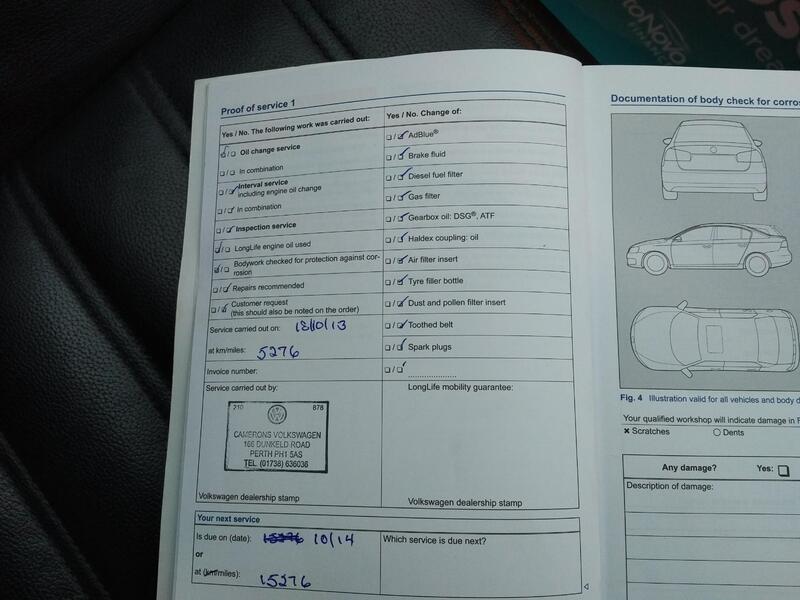 toNovo
FINANCE
ur drea
Proof of service 1
Yes / No. The following work was carried out:
Oil change service
In combination
Interval service
including engine oil change
In combination
Inspection service
LongLife engine oil used
Bodywork checked for protection against cor-
rosion
Repairs recommended
Customer request
(this should also be noted on the order)
Service carried out on:
at km/miles: 5276
Invoice number:
Yes / No. Change of:
AdBlue®
Brake fluid
Diesel fuel filter
Gas filter
Gearbox oil: DSG®, ATF
Haldex coupling: oil
Air filter insert
Tyre filler bottle
Dust and pollen filter insert
Toothed belt
Spark plugs
.....................
Service carried out by:
210 878
CAMERONS VOLKSWAGEN
166 DUNKELD ROAD
PERTH PH1 5AS
TEL (01738) 636036
Volkswagen dealership stamp
LongLife mobility guarantee:
Volkswagen dealership stamp
Your next service
Is due on (date): 15276 10/14
or
at (km/miles): 15276
Which service is due next?
Documentation of body check for corros
Fig. 4 Illustration valid for all vehicles and body d
Your qualified workshop will indicate damage in F
Scratches Dents
Any damage? Yes:
Description of damage: